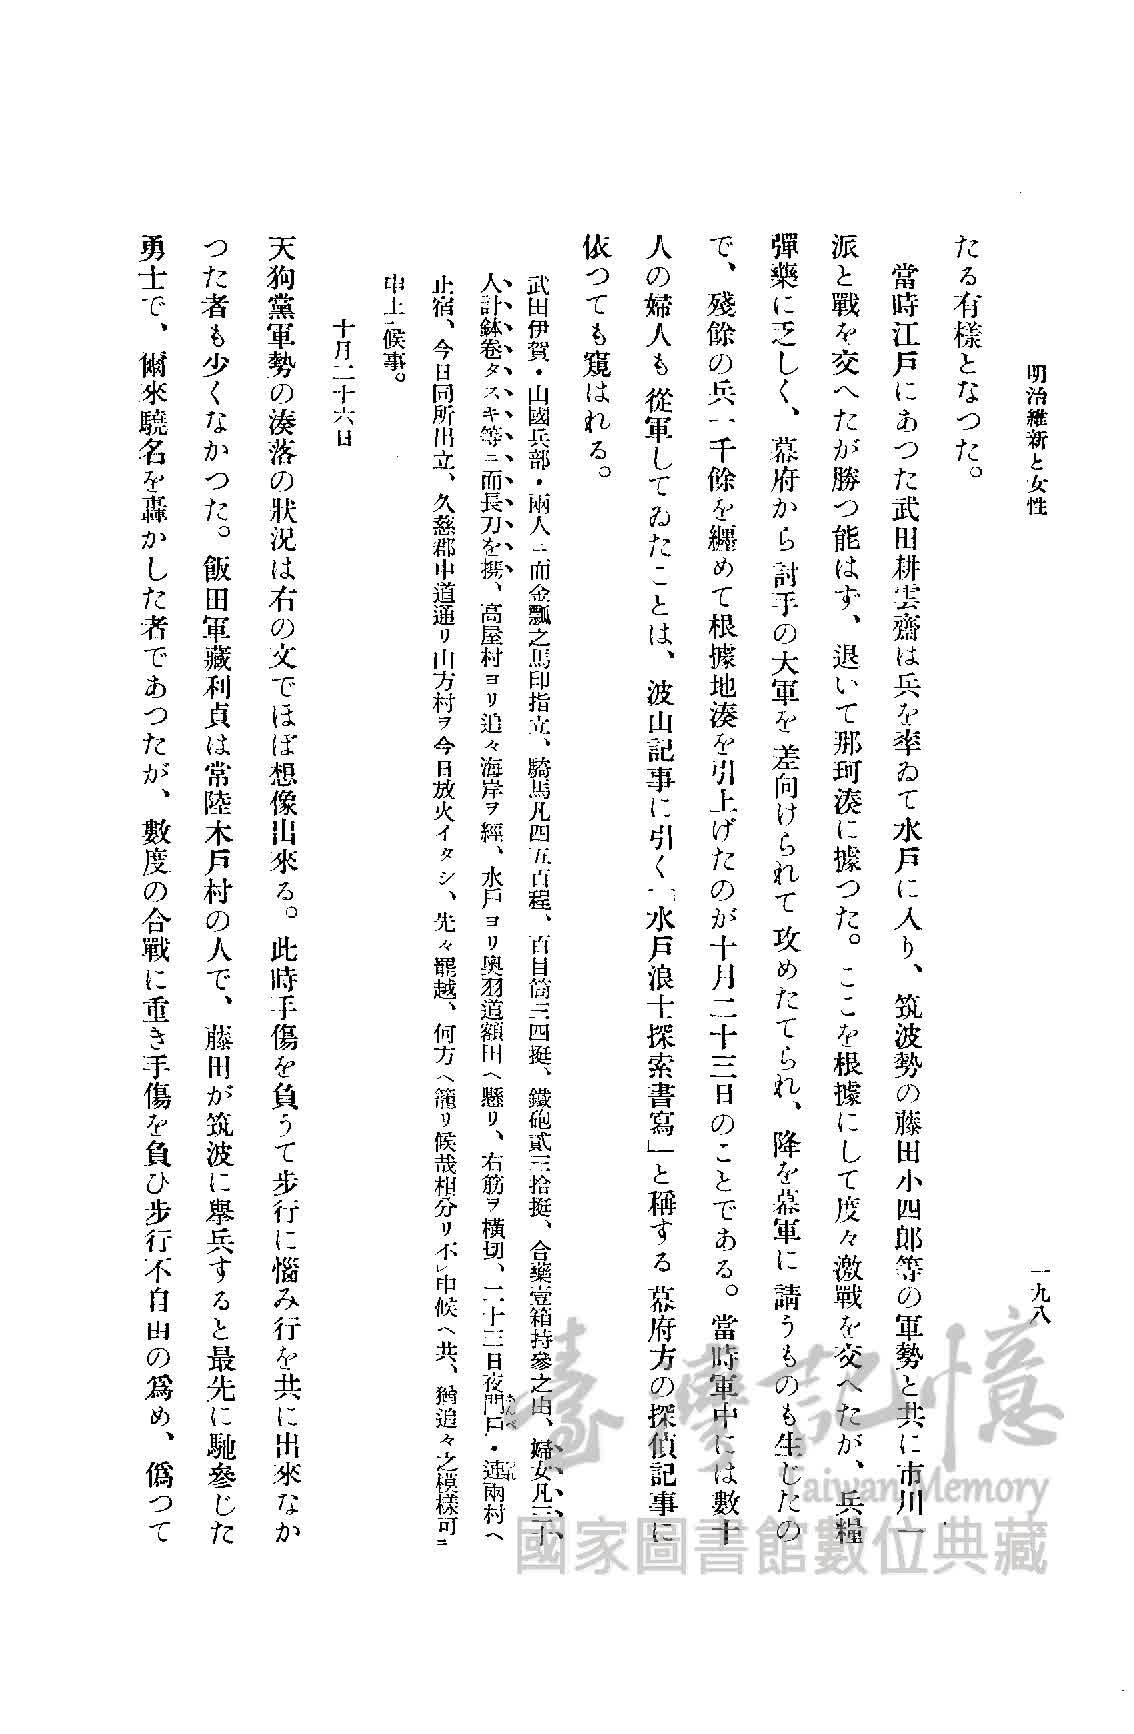 明治維新と女性
一九八
たる有樣となつた。
當時江戸にあつた武田耕雲齋は兵を率ゐて水戸に入り、筑波勢の藤田小四郎等の軍勢と共に市川一
派と戰を交へたが勝つ能はず、退いて那珂湊に據つた。ここを根據にして度々激戰を交へたが、兵糧
彈藥に乏しく、幕府から討手の大軍を差向けられて攻めたてられ、降を幕軍に請うものも生じたの
で、殘餘の兵一千餘を纒めて根據地湊を引上げたのが十月二十三日のことである。當時軍中には數十
人の婦人も從軍してゐたことは、波山記事に引く「水戸浪士探索書寫」と稱する幕府方の探偵記事に
依つても窺はれる。
武田伊賀・山國兵部・兩人ニ而金瓢之馬印指立、騎馬凡四五百程、百目筒三四挺、鐵砲貳三拾挺、合藥壹箱持參之由、婦女凡三十
人計鉢卷タスキ等ニ而長刀を携、高屋村ヨリ追々海岸ヲ經、水戸ヨリ奥羽道額田ヘ懸リ、右筋ヲ横切、二十三日夜門戸・連兩村ヘ
止宿、今日同所出立、久慈郡中道通リ山方村ヲ今日放火イタシ、先々罷越、何方ヘ籠リ候哉相分リ不レ申候ヘ共、猶追々之模樣可ニ
申上一候事。
十月二十六日
天狗黨軍勢の湊落の狀況は右の文でほぼ想像出來る。此時手傷を負うて步行に惱み行を共に出來なか
つた者も少くなかつた。飯田軍藏利貞は常陸木戸村の人で、藤田が筑波に擧兵すると最先に馳參じた
勇士で、爾來驍名を轟かした者であつたが、數度の合戰に重き手傷を負ひ步行不自由の爲め、僞つて
臺灣記憶
Taiwan Memory
國家圖書館數位典藏